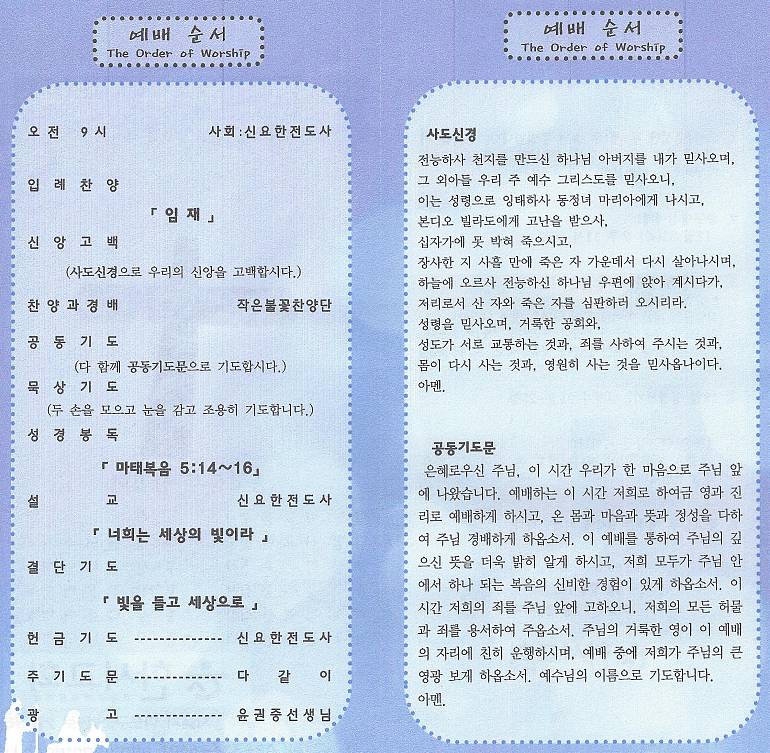 예배 순서
The Order of Worship
오전 9시 사회:신요한전도사
입례찬양
「임재」
신앙고백
(사도신경으로 우리의 신앙을 고백합시다.)
찬양과경배 작은불꽃찬양단
공동기도
(다 함께 공동기도문으로 기도합시다.)
묵상기도
(두 손을 모으고 눈을 감고 조용히 기도합니다.)
성경봉독
「마태복음 5:14~16」
설 교 신요한전도사
「너희는 세상의 빛이라」
결단기도
「빛을 들고 세상으로」
헌금기도 -------------- 신요한전도사
주기도문 -------------- 다 같 이
광 고 -------------- 윤권중선생님
예배 순서
The Order of Worship
사도신경
전능하사 천지를 만드신 하나님 아버지를 내가 믿사오며,
그 외아들 우리 주 예수 그리스도를 믿사오니,
이는 성령으로 잉태하사 동정녀 마리아에게 나시고,
본디오 빌라도에게 고난을 받으사,
십자가에 못 박혀 죽으시고,
장사한 지 사흘 만에 죽은 자 가운데서 다시 살아나시며,
하늘에 오르사 전능하신 하나님 우편에 앉아 계시다가,
저리로서 산 자와 죽은 자를 심판하러 오시리라.
성령을 믿사오며, 거룩한 공회와,
성도가 서로 교통하는 것과, 죄를 사하여 주시는 것과,
몸이 다시 사는 것과, 영원히 사는 것을 믿사옵나이다.
아멘.
공동기도문
은혜로우신 주님, 이 시간 우리가 한 마음으로 주님 앞
에 나왔습니다. 예배하는 이 시간 저희로 하여금 영과 진
리로 예배하게 하시고, 온 몸과 마음과 뜻과 정성을 다하
여 주님 경배하게 하옵소서. 이 예배를 통하여 주님의 깊
으신 뜻을 더욱 밝히 알게 하시고, 저희 모두가 주님 안
에서 하나 되는 복음의 신비한 경험이 있게 하옵소서. 이
시간 저희의 죄를 주님 앞에 고하오니, 저희의 모든 허물
과 죄를 용서하여 주옵소서. 주님의 거룩한 영이 이 예배
의 자리에 친히 운행하시며, 예배 중에 저희가 주님의 큰
영광 보게 하옵소서. 예수님의 이름으로 기도합니다.
아멘.